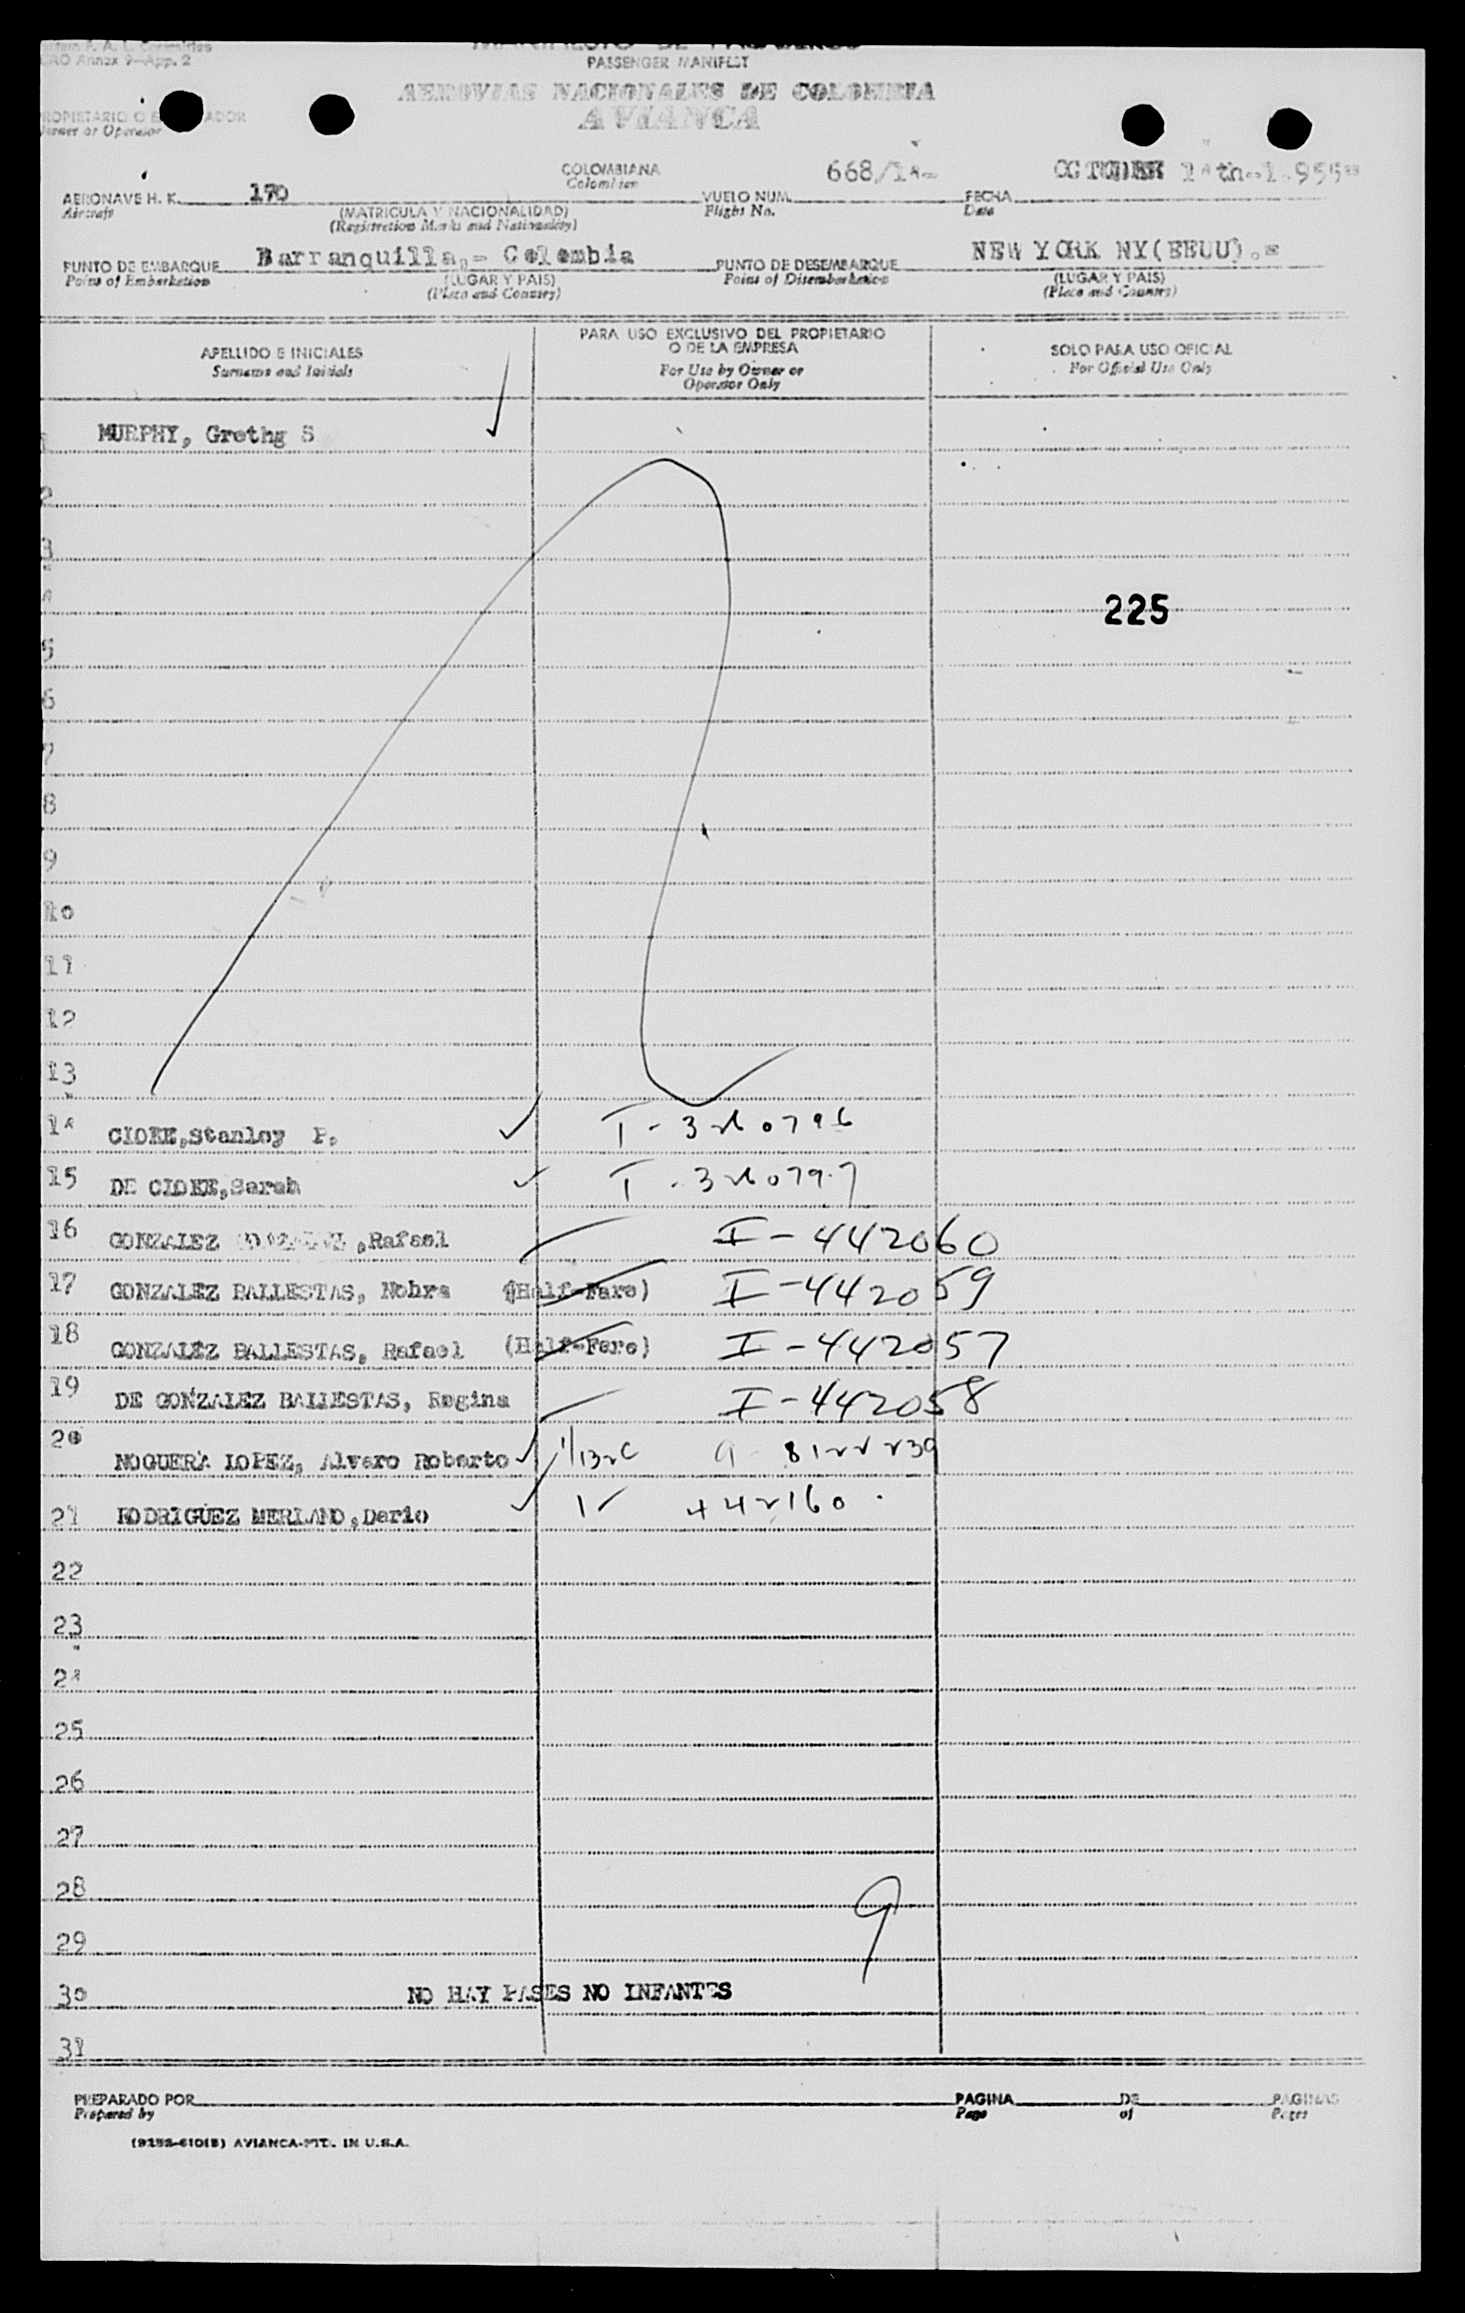 PASSENGER MANIFEST
ICAO Annex 9—App. 2
AEROVIAS NACIONALES DE COLOMBIA
AVIANCA
Owner or Operator
COLOMBIANA
Colombian
668/14-
OCTOBER 14th-1.955=
AERONAVE H. K. 170 VUELO NUM. FECHA
Aircraft (MATRICULA Y NACIONALIDAD) Flight No. Date
(Registration Marks and Nationality)
PUNTO DE EMBARQUE Barranquilla,- Colombia PUNTO DE DESEMBARQUE NEW YORK NY(EEUU).=
Point of Embarkation (LUGAR Y PAIS) Point of Disembarkation (LUGAR Y PAIS)
(Place and Country) (Place and Country)
APELLIDO E INICIALES
Surname and Initials
PARA USO EXCLUSIVO DEL PROPIETARIO
O DE LA EMPRESA
For Use by Owner or
Operator Only
SOLO PARA USO OFICIAL
For Official Use Only
1 MURPHY, Grethg S
2
3
4
225
5
6
7
8
9
10
11
12
13
14 CIOEE,Stanley P.
15 DE CIOEE,Sarah
16 GONZALEZ ,Rafael I-442060
17 GONZALEZ BALLESTAS, Nohra (Half-Fare) I-442059
18 GONZALEZ BALLESTAS, Rafael (Half-Fare) I-442057
19 DE GONZALEZ BALLESTAS, Regina I-442058
20 NOGUERA LOPEZ, Alvaro Roberto
21 RODRIGUEZ MERLANO,Dario
22
23
24
25
26
27
28
9
29
30 NO HAY PASES NO INFANTES
31
PREPARADO POR PAGINA DE PAGINAS
Prepared by Page of Pages
AVIANCA-PTD. IN U.S.A.